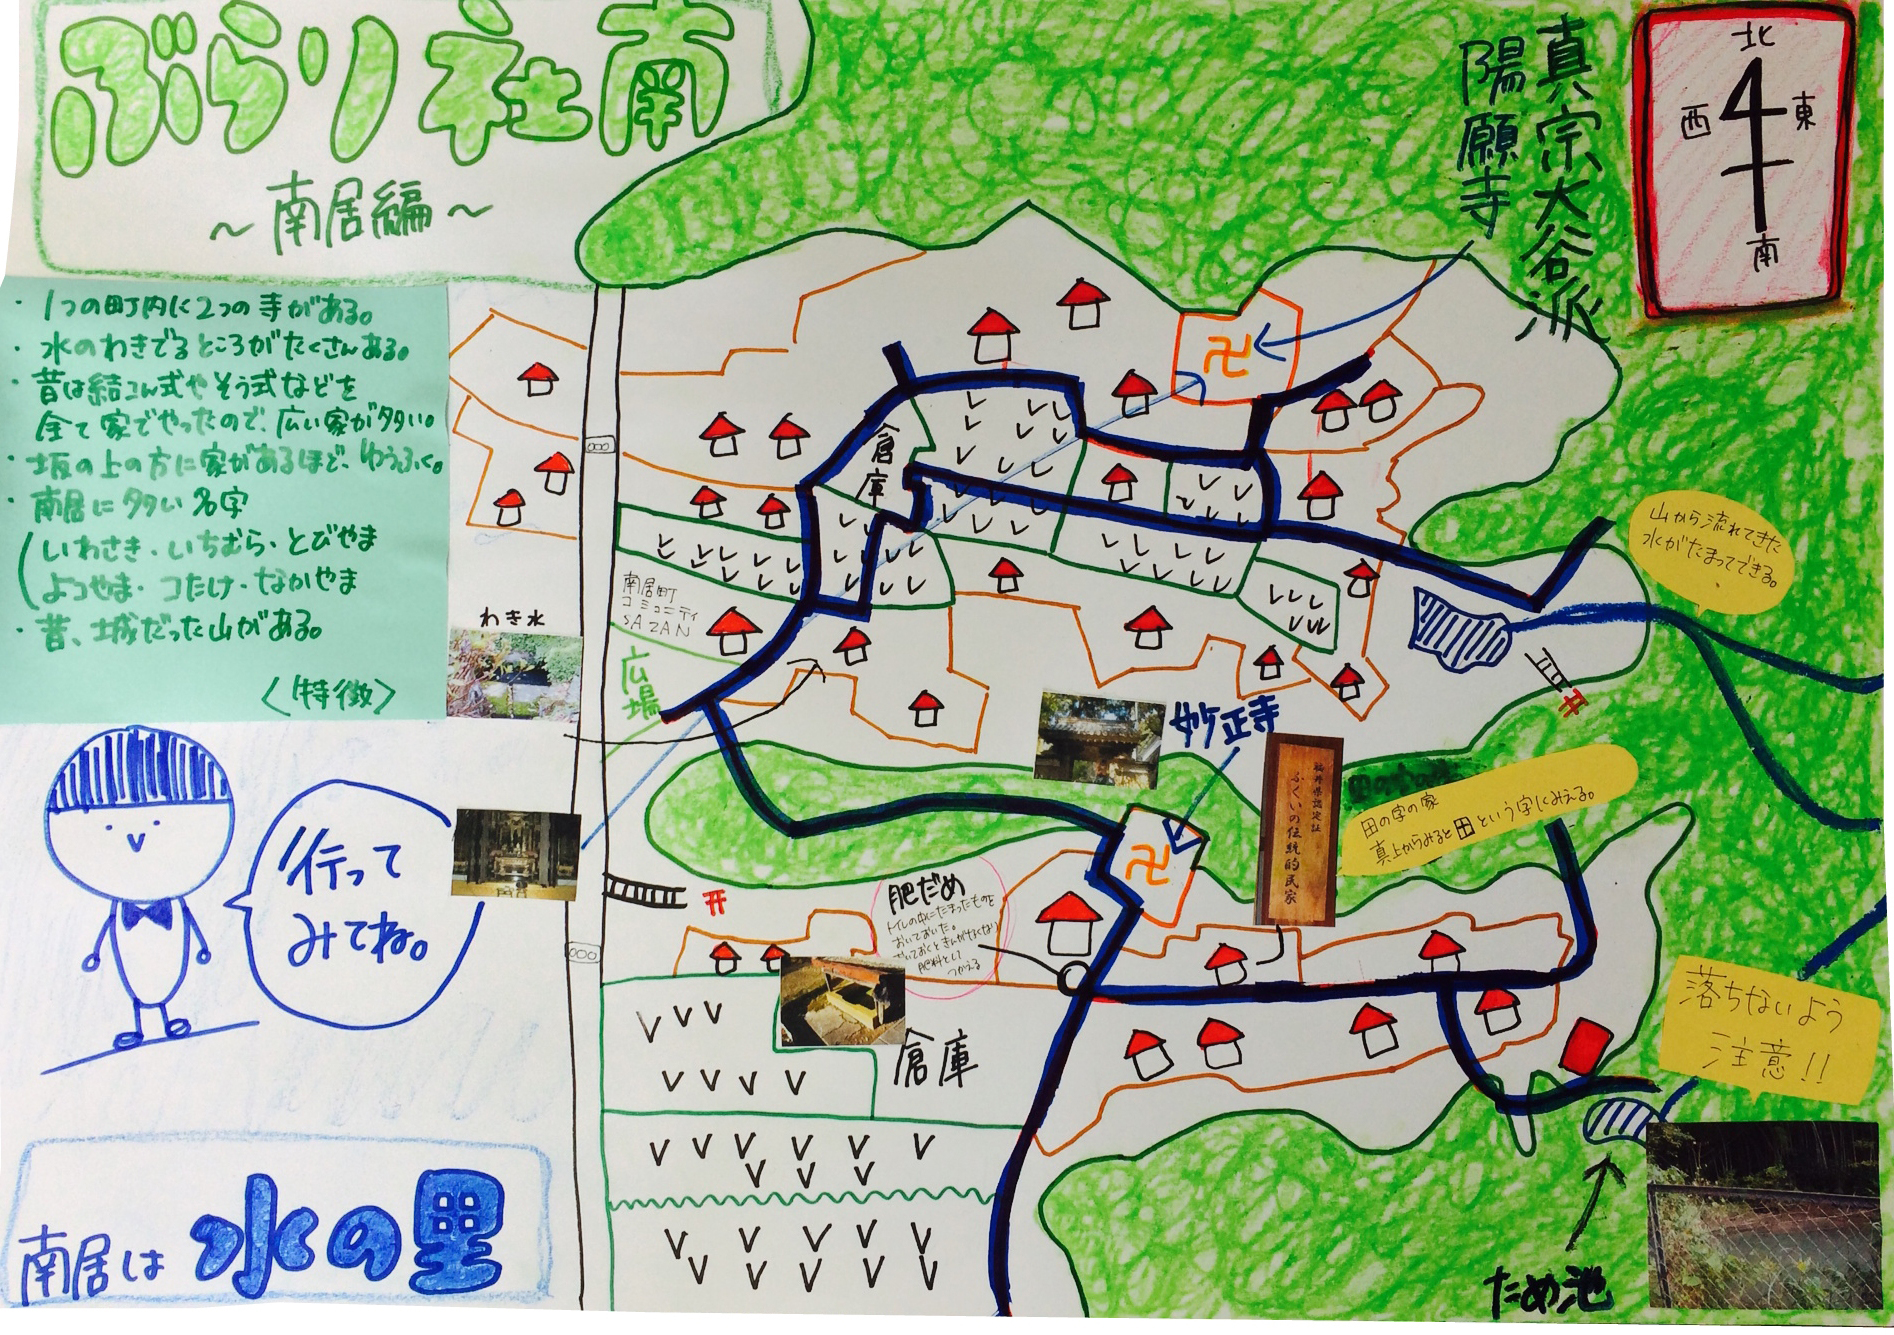 ぶらり社南
～南居編～
・1つの町内に2つの寺がある。
・水のわきでるところがたくさんある。
・昔は結こん式やそう式などを
全て家でやったので、広い家が多い。
・坂の上の方に家があるほど、ゆうふく。
・南居に多い名字
いわさき・いちむら・とびやま
よつやま・つたけ・なかやま
・昔、城だった山がある。
〈特徴〉
行って
みてね。
南居は水の里
わき水
真宗大谷派
陽願寺
北
西
東
南
倉庫
南居町
コミュニティ
SAZAN
広場
山から流れてきた
水がたまってできる。
妙正寺
福井県認定証
ふくいの伝統的民家
田の字の家
真上からみると田という字にみえる。
肥だめ
トイレの中にたまったものを
おいておいた。
おいておくときんがなくなり
肥料として
つかえる
倉庫
落ちないよう
注意!!
ため池